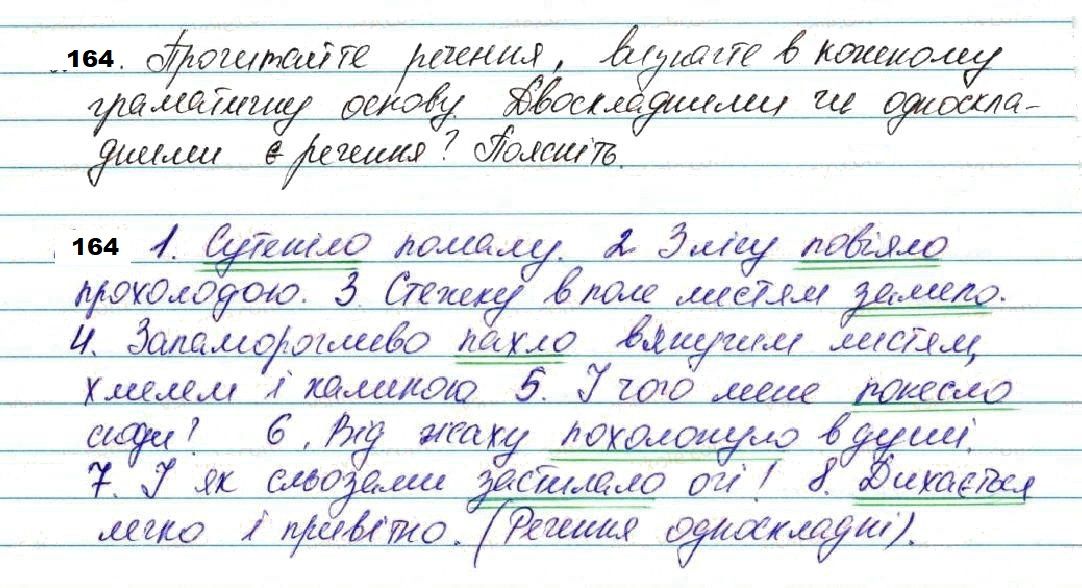 164. Прочитайте речення, визначте в кожному
граматичну основу. Двоскладними чи односкла-
дними є речення? Поясніть.
164 1. Сутеніло помалу. 2 З лісу повіяло
прохолодою. 3. Стежку в поле листям замело.
4. Запаморочливо пахло вянучим листям,
хмелем і калиною 5. І чого мене понесло
сюди? 6. Від жаху похолонуло в душі.
7. І як сльозами застилало очі! 8. Дихається
легко і привітно. (Речення односкладні).